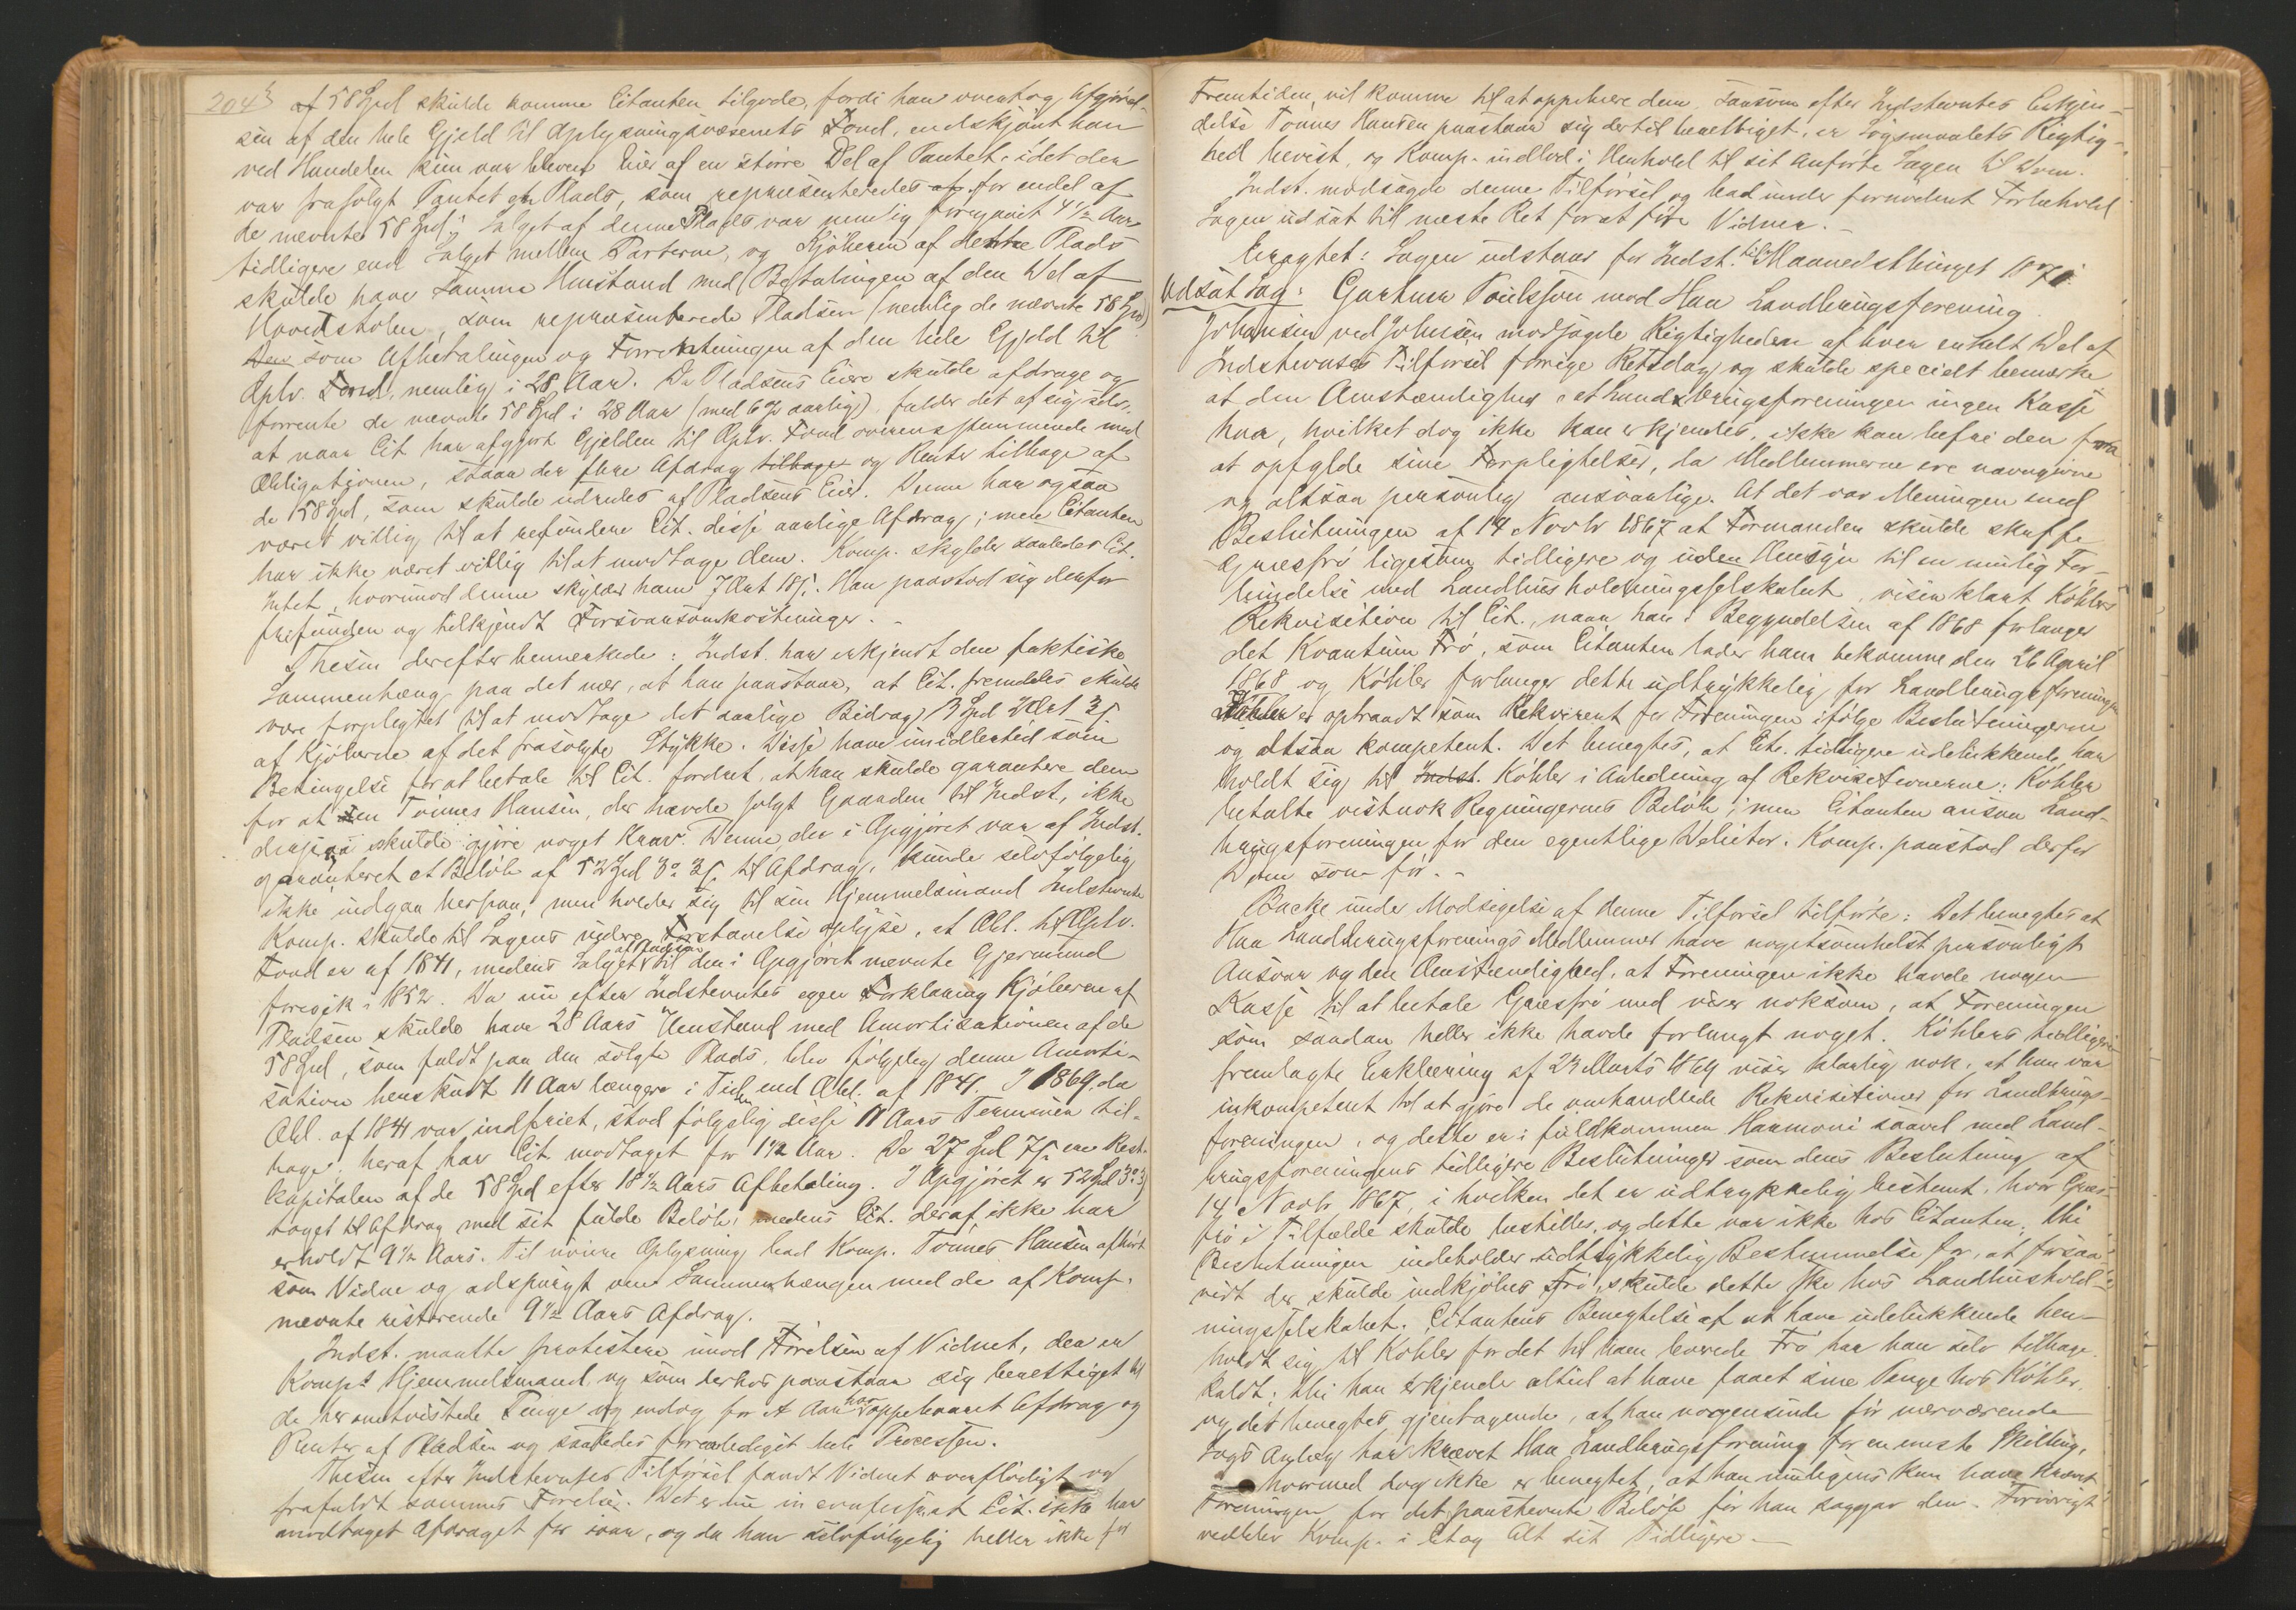 204b
af 58 Spd skulde komme Citanten tilgode, fordi han overtog Afgjørel-
sen af den hele Gjeld til Oplysningsvæsenets Fond, endskjønt han
ved Handelen kun var bleven Eier af en større Del af Pantet, idet der
var frasolgt Pantet en Plads, som repræsenteredes af for endel af
de nævnte 58 Spd; Salget af denne Plads var nemlig foregaaet 4 1/2 Aar
tidligere end Salget mellem Parterne, og Kjøberen af denne Plads
skulde have samme Henstand med Betalingen af den Del af
Hovedstolen, som repræsenterede Pladsen (nemlig de nævnte 58 Spd)
Den som Afbetalingen og Forrentningen af den hele Gjeld til
Oplv. Fond, nemlig i 28 Aar. Da Pladsens Eiere skulde afdrage og
forrente de nævnte 58 Spd i 28 Aar (med 6 % aarlig), falder det af sig selv,
at naar Cit har afgjort Gjelden til Oplv. Fond overensstemmende med
Obligationen, staar der flere Afdrag tilbage og Renter tilbage af
de 58 Spd, som skulde udredes af Pladsens Eier. Denne har ogsaa
været villig til at refundere Cit. disse aarlige Afdrag; men Citanten
har ikke været villig til at modtage dem. Komp. skylder saaledes Cit.
Intet, hvorimod denne skylder ham 7 Ort 18 s. Han paastod sig derfor
frifunden og tilkjendt Forsvarsomkostninger. -
Thesen derefter bemerkede: Indst. har erkjendt den faktiske
Sammenhæng paa det nær, at han paastaar, at Cit. fremdeles skulde
være forpligtet til at modtage det aarlige Bidrag 3 Spd 2 Ort 3 s
af Kjøberne af det frasolgte Stykke. Disse have imidlertid som
Betingelse for at betale til Cit. fordret, at han skulde garantere dem
for at en Tønnes Hansen, der havde solgt Gaarden til Indst., ikke
desaa skulde gjøre noget Krav. Denne, der i Opgjøret var af Indst.
garanteret et Beløb af 52 Spd 3 o 3 s. til Afdrag, kunde selvfølgelig
ikke indgaa herpaa, men holder sig til sin Hjemmelsmand Indstevnte
Komp. skulde til Sagens videre Forstaaelse oplyse, at Obl. til Oplv.
Fond er af 1841, medens Salget af Pladsen til den i Opgjøret nævnte Gjermund
foregik i 1852. Da nu efter Indstevntes egen Forklaring Kjøberen af
Pladsen skulde have 28 Aars Henstand med Amortisationen af de
58 Spd, som faldt paa den solgte Plads, blev følgelig denne Amorti-
sation henskudt 11 Aar længere i Tiden end Obl. af 1841. I 1869, da
Obl. af 1841 var indfriet, stod følgelig disse 11 Aars Terminer til-
bage, heraf har Cit modtaget for 1 1/2 Aar. De 27 Spd 7 s. ere Rest-
kapitalen af de 58 Spd efter 18 1/2 Aars Afbetaling. I Opgjøret er 52 Spd 3 o 3 s
taget til Afdrag med sit fulde Beløb, medens Cit. deraf ikke har
erholdt 9 1/2 Aars. Til nøiere Oplysning bad Komp. Tønnes Hansen afhørt
som Vidne og adspurgt om Sammenhængen med de af Komp.
nævnte resterende 9 1/2 Aars Afdrag.
Indst. maatte protestere imod Førelsen af Vidnet, der er
Komps Hjemmelsmand, og som derhos paastaar sig berettiget til
de her omtvistede Penge og endog for et Aar har oppebaaret Afdrag og
Renter af Pladsen og saaledes foranlediget hele Processen.
Thesen efter Indstevntes Tilførsel fandt Vidnet overflødigt og
frafaldt sammes Førelse. Det er nu in confesso, at Cit. ikke har
modtaget Afdraget for iaar, og da han selvfølgelig heller ikke for
Fremtiden vil komme til at oppebære dem, saasom efter Indstevntes Erkjen-
delse Tønnes Hansen paastaar sig dertil berettiget, er Søgsmaalets Rigtig-
hed bevist, og Komp. indlod i Henhold til sit Anførte Sagen til Dom.
Indst. modsagde denne Tilførsel og bad under fornødent Forbehold
Sagen udsat til næste Ret for at føre Vidner. -
Eragtet: Sagen udstaar for Indst. til Maanedsthinget 1871.
Udsat Sag: Gartner Poulsson mod Haa Landbrugsforening
Johansen ved Johnsen modsagde Rigtigheden af hver enkelt Del af
Indstevntes Tilførsel forrige Retsdag og skulde specielt bemærke
at den Omstændighed at Landbrugsforeningen ingen Kasse
har, hvilket dog ikke kan erkjendes, ikke kan befri den fra
at opfylde sine Forpligtelser, da Medlemmerne ere navngivne
og altsaa personlig ansvarlige. At det var Meningen med
Beslutningen af 14 Novbr 1867 at Formanden skulde skaffe
Græsfrø ligesom tidligere og uden Hensyn til en mulig For-
bindelse med Landhusholdningsselskabet, viser klart Køhlers
Rekvisition til Cit., naar han i Begyndelsen af 1868 forlanger
det Kvantum Frø, som Citanten lader ham bekomme den 26 April
1868 og Køhler forlanger dette udtrykkelig for Landbrugsforeningen
Køhler er optraadt som Rekvirent for Foreningen ifølge Beslutningerne
og altsaa kompetent. Det benegtes, at Cit. tidligere udelukkende har
holdt sig til Indst. Køhler i Anledning af Rekvisitionerne; Køhler
betalte vistnok Regningernes Beløb; men Citanten ansaa Land-
brugsforeningen for den egentlige Debitor. Komp. paastod derfor
Dom som før. -
Backe under Modsigelse af denne Tilførsel tilførte: Det benegtes at
Haa Landbrugsforenings Medlemmer have nogetsomhelst personligt
Ansvar og den Omstændighed, at Foreningen ikke havde nogen
Kasse til at betale Græsfrø med viser noksom, at Foreningen
som saadan heller ikke havde forlangt noget. Køhlers tidligere
fremlagte Erklæring af 23 Marts 1869 viser klarlig nok, at han var
inkompetent til at gjøre de omhandlede Rekvisitioner for Landbrugs-
foreningen, og dette er i fuldkommen Harmoni saavel med Land-
brugsforeningens tidligere Beslutninger som dens Beslutning af
14 Novbr 1867, i hvilken det er udtrykkelig bestemt, hvor Græs-
frø i Tilfælde skulde bestilles, og dette var ikke hos Citanten, thi
Beslutningen indeholder udtrykkelig Bestemmelse for, at forsaa-
vidt der skulde indkjøbes Frø, skulde dette ske hos Landhushold-
ningsselskabet. Citantens Benegtelse af at have udelukkende hen-
holdt sig til Køhler for det til ham leverede Frø har han selv tilbage-
kaldt; thi han erkjender altid at have faaet sine Penge hos Køhler,
og det benegtes gjentagende, at han nogensinde før nærværende
Sags Anlæg har krævet Haa Landbrugsforening for en eneste Skilling,
hvormed dog ikke er benegtet, at han muligens kan have krævet
Foreningen for det paastevnte Beløb før han sagsøgte den. Forøvrigt
vedblev Komp. i Et og Alt sit Tidligere. -